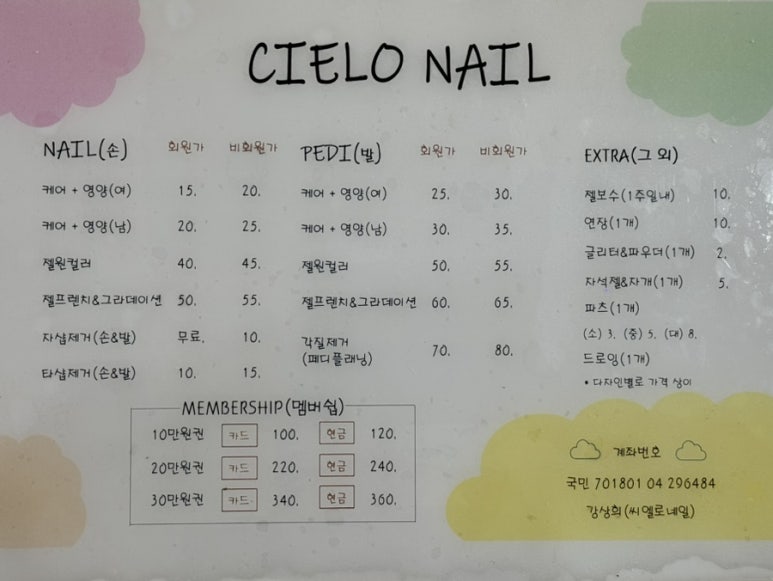 CIELO NAIL
NAIL(손) 회원가 비회원가
케어 + 영양(여) 15. 20.
케어 + 영양(남) 20. 25.
젤원컬러 40. 45.
젤프렌치&그라데이션 50. 55.
자샵제거(손&발) 무료. 10.
타샵제거(손&발) 10. 15.
PEDI(발) 회원가 비회원가
케어 + 영양(여) 25. 30.
케어 + 영양(남) 30. 35.
젤원컬러 50. 55.
젤프렌치&그라데이션 60. 65.
각질제거
(페디플래닝) 70. 80.
EXTRA(그 외)
젤보수(1주일내) 10.
연장(1개) 10.
글리터&파우더(1개) 2.
자석젤&자개(1개) 5.
파츠(1개)
(소) 3. (중) 5. (대) 8.
드로잉(1개)
• 디자인별로 가격 상이
MEMBERSHIP(멤버쉽)
10만원권 카드 100. 현금 120.
20만원권 카드 220. 현금 240.
30만원권 카드 340. 현금 360.
계좌번호
국민 701801 04 296484
강상희(씨엘로네일)